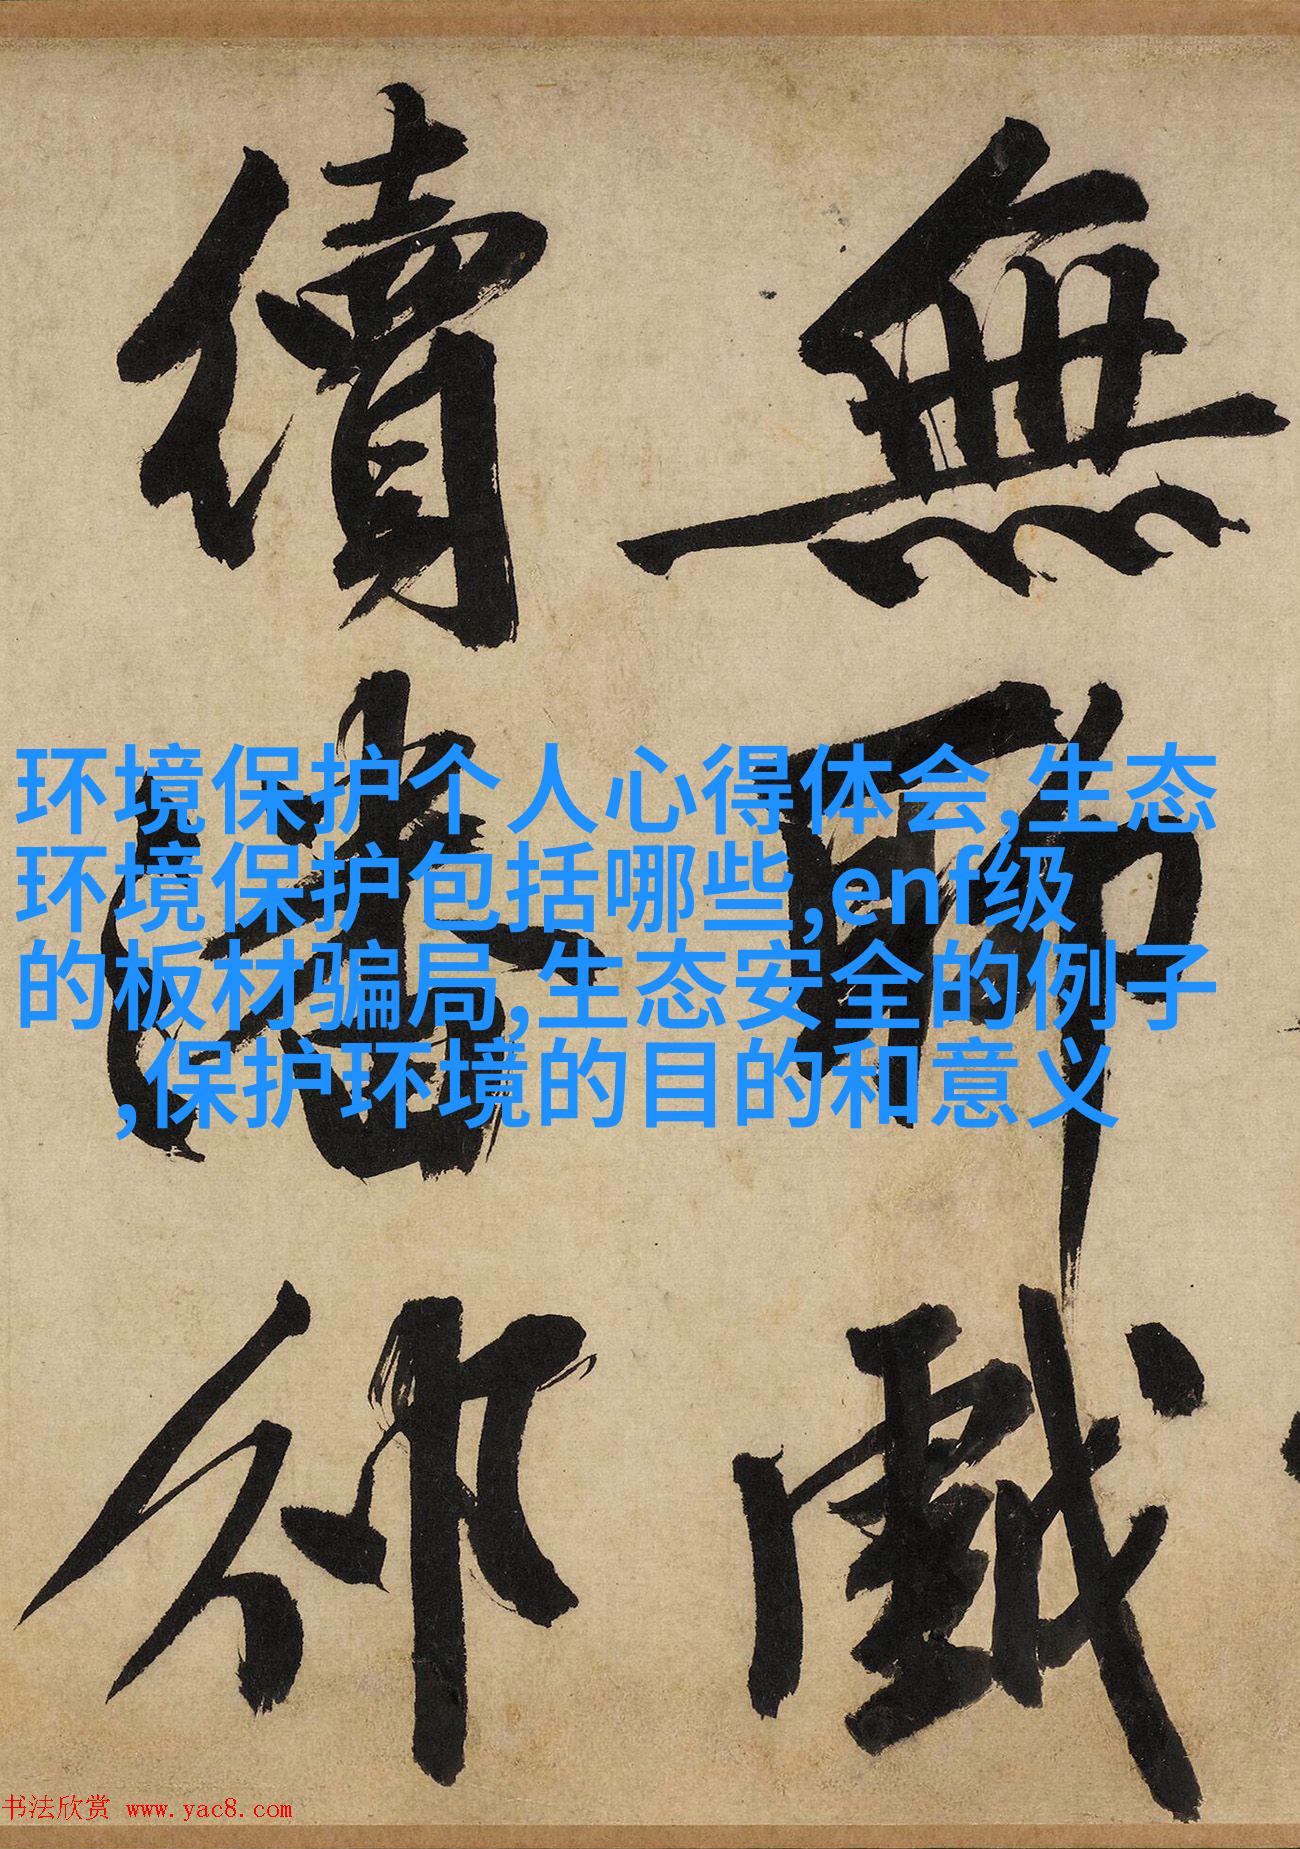 無聊戲
續書邠
环境保护个人心得体会,生态
环境保护包括哪些,enf级
的板材骗局,生态安全的例子
,保护环境的目的和意义
书法欣赏 www.yac8.com